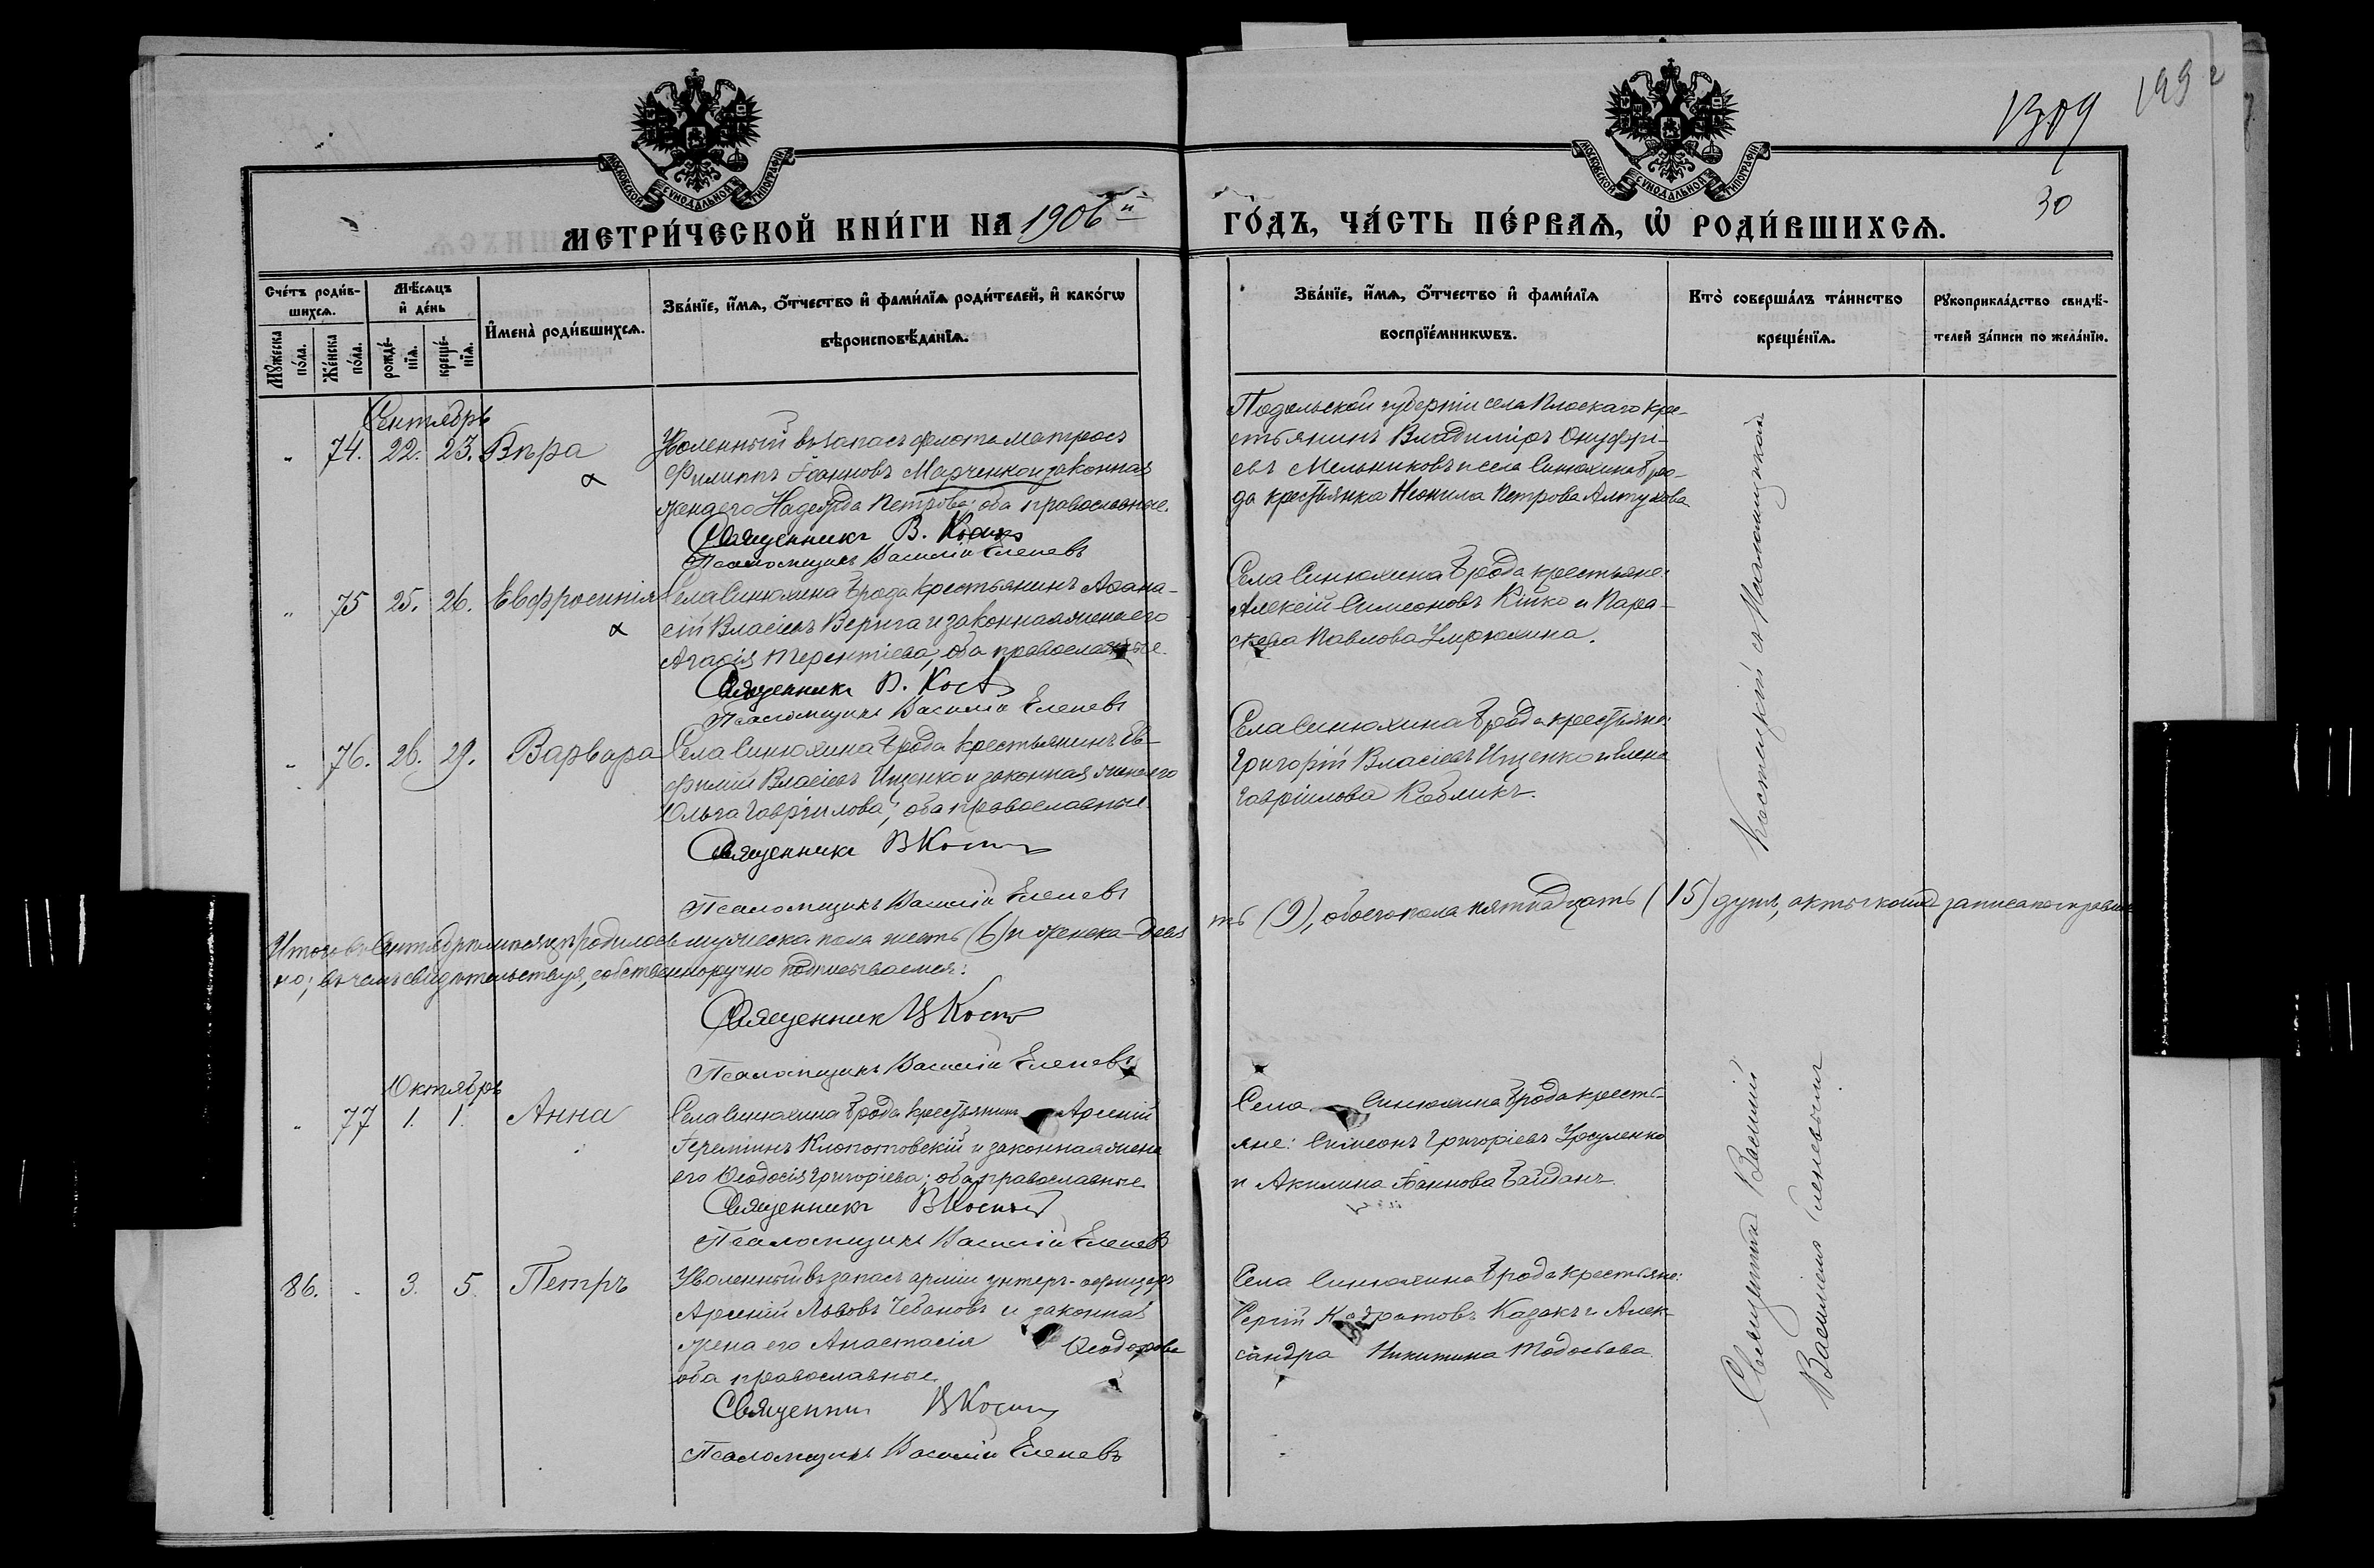 1309
199
30
МОСКОВСКОЙ СѴНОДАЛЬНОЙ ТИПОГРАФІИ
МОСКОВСКОЙ СѴНОДАЛЬНОЙ ТИПОГРАФІИ
МЕТРИ́ЧЕСКОЙ КНИ́ГИ НА 1906й ГО́ДЪ, ЧА́СТЬ ПЕ́РВАѦ, Ѡ҆ РОДИ́ВШИХСѦ.
Сче́тъ роди́в-
шихсѧ.
Мꙋ́жеска по́ла.
Же́нска по́ла.
Мѣ́сѧцъ
и҆ де́нь
рожде́-
нїѧ.
креще́-
нїѧ.
И҆мена̀ роди́вшихсѧ.
Зва́нїе, и҆́мѧ, ѻ҆́тчество и҆ фами́лїѧ роди́телей, и҆ како́гѡ
вѣроисповѣ́данїѧ.
Зва́нїе, и҆́мѧ, ѻ҆́тчество и҆ фами́лїѧ
воспрїе́мникѡвъ.
Кто̀ соверша́лъ та́инство
креще́нїѧ.
Рꙋкоприкла́дство свидѣ́-
телей за́писи по жела́нїю.
Сентябрь
" 74. 22. 23. Вѣра
Уволенный въ запасъ флота матросъ
Филиппъ Іоанновъ Марченко и законная
жена его Надежда Петрова; оба православные.
Священникъ В. Кост
Псаломщикъ Василій Еленевъ
Подольской губерніи села Плоскаго кре-
стьянинъ Владиміръ Онуфрі-
евъ Мельниковъ и села Синюхина Бро-
да крестьянка Неонила Петрова Алтухова
" 75 25. 26. Евфросинія
Села Синюхина Брода крестьянинъ Аѳана-
сій Власіевъ Верига и законная жена его
Агаѳія Терентіева; оба православные.
Священникъ В. Кост
Псаломщикъ Василій Еленевъ
Села Синюхина Брода крестьяне:
Алексій Симеоновъ Кійко и Пара-
скева Павлова
" 76. 26. 29. Варвара
Села Синюхина Брода крестьянинъ Ев-
фимій Власіевъ Ищенко и законная жена его
Ольга Гавріилова; оба православные.
Священникъ В Кост
Псаломщикъ Василій Еленевъ
Села Синюхина Брода крестьяне:
Григорій Власіевъ Ищенко и Елена
Гавріилова Кобликъ.
Итого въ Сентябрѣ мѣсяцѣ родилось мужеска пола шесть (6) и женска девять (9), обоего пола пятнадцать (15) душъ, акты коихъ записаны правиль-
но; въ чемъ свидѣтельствуя, собственноручно подписываемся:
Священникъ В Кост
Псаломщикъ Василій Еленевъ
Октябрь
" 77 1. 1. Анна
Села Синюхина Брода крестьянинъ Арсеній
Іереміинъ Клопотовскій и законная жена
его Ѳеодосія Григоріева; оба православные
Священникъ В Кост
Псаломщикъ Василій Еленевъ
Села Синюхина Брода кресть-
яне: Симеонъ Григоріевъ Урсуленко
и Акилина Іоаннова Байданъ
86. " 3. 5. Петръ
Уволенный въ запасъ арміи унтеръ-офицеръ
Арсеній Львовъ Чебановъ и законная
жена его Анастасія Ѳеодорова
оба православные.
Священникъ В Кост
Псаломщикъ Василій Еленевъ
Села Синюхина Брода крестьяне:
Сергій Кодратовъ Казакъ и Алек-
сандра Никитина
Священникъ Василій Костецкій съ Псаломщикомъ
Василіемъ Еленевымъ